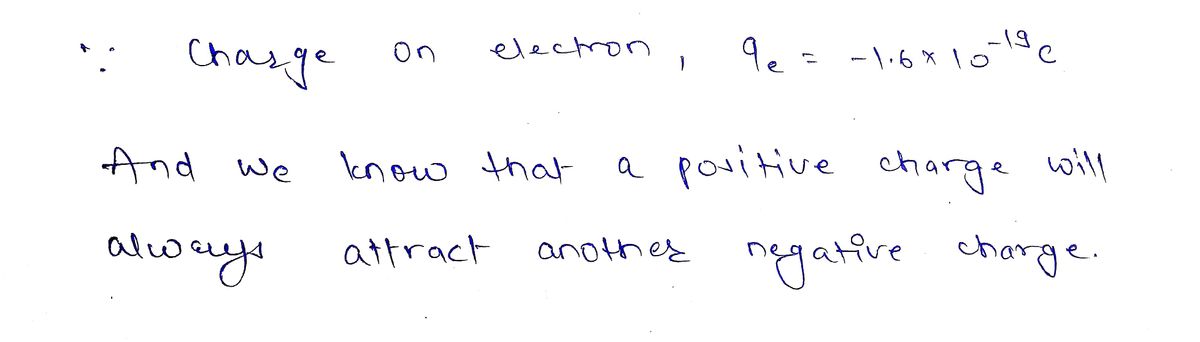 ∵ Charge on electron, qe = -1.6 × 10⁻¹⁹ C
And we know that a positive charge will
always attract another negative charge.